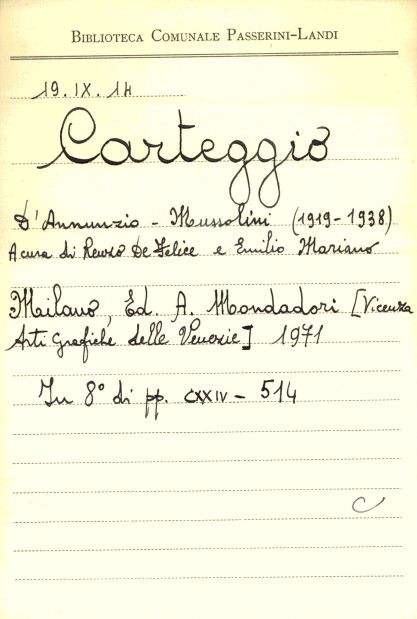 BIBLIOTECA COMUNALE PASSERINI-LANDI
19. IX. 14
Carteggio
D'Annunzio - Mussolini (1919-1938)
A cura di Renzo De Felice e Emilio Mariano
Milano, Ed. A. Mondadori [Vicenza
Arti Grafiche delle Venezie] 1971
In 8° di pp. CXXIV - 514
C